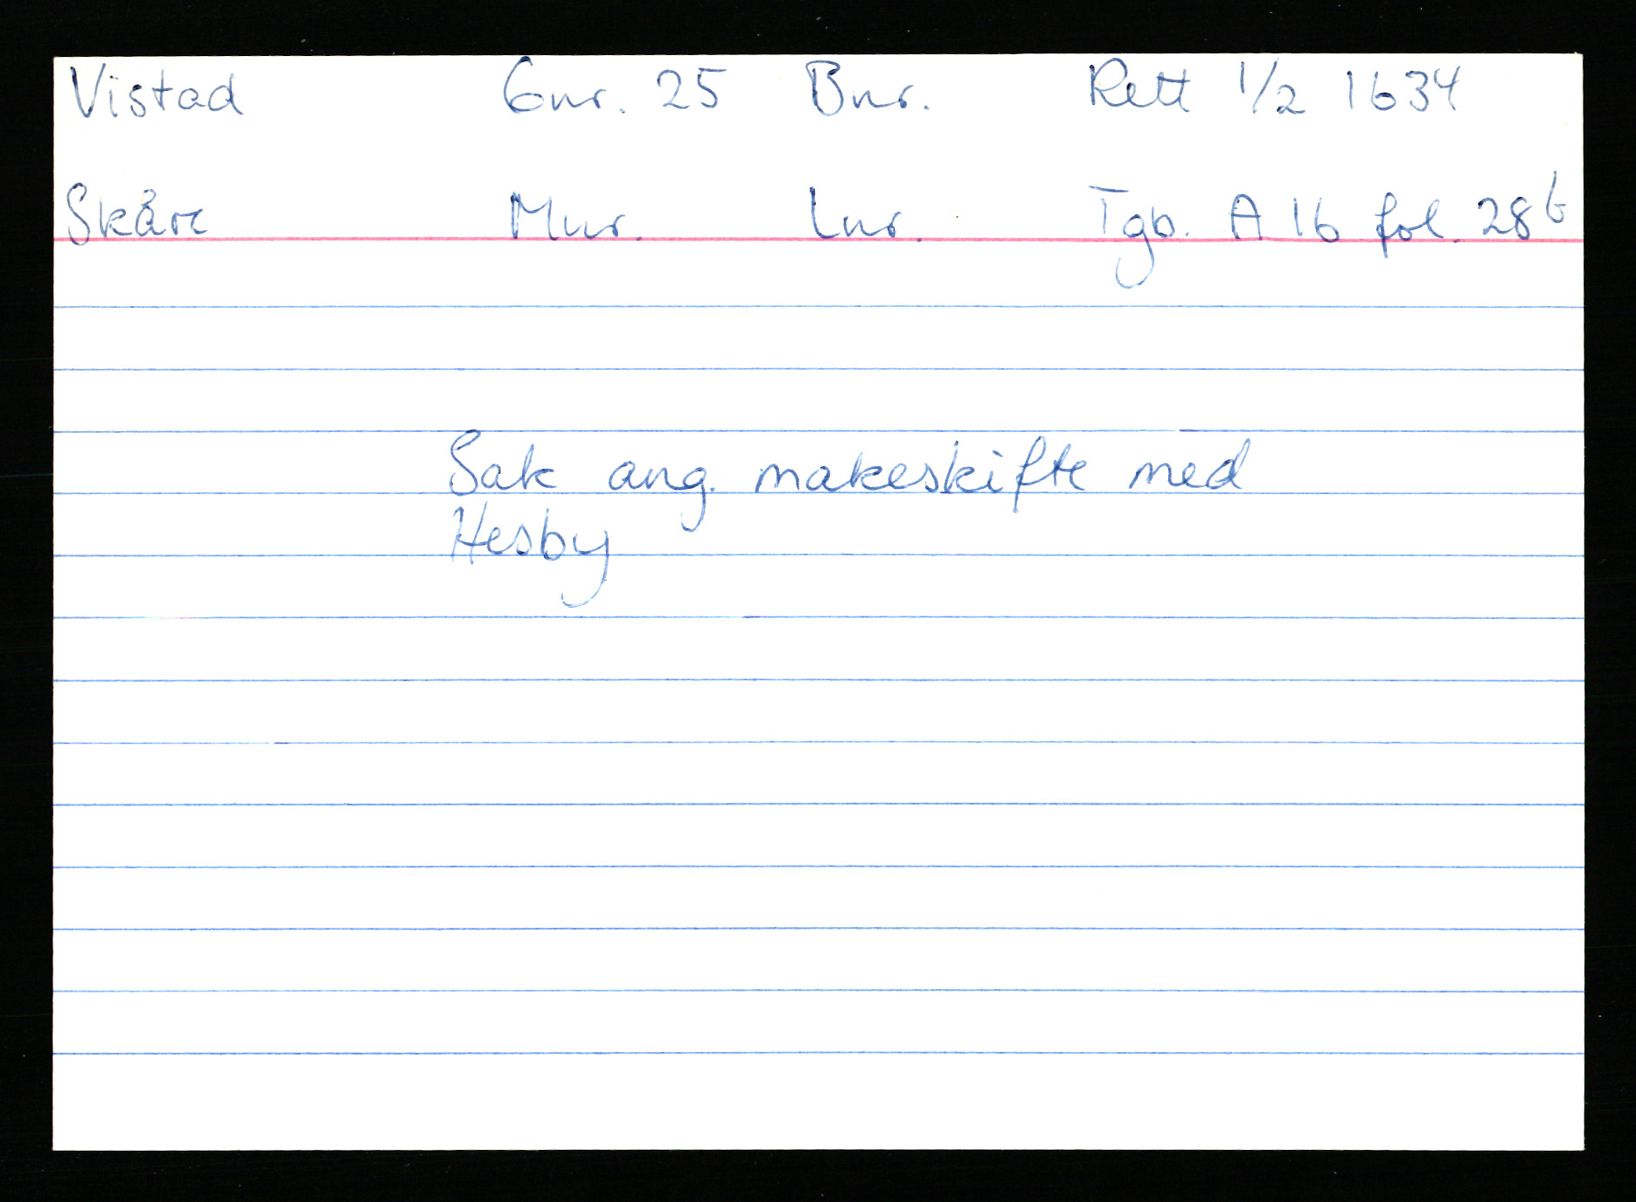 Vistad Gnr. 25 Bnr. Rett 1/2 1634
Skåre Mnr. Lnr. Tgb. A 16 fol. 28b
Sak ang. makeskifte med
Hesby